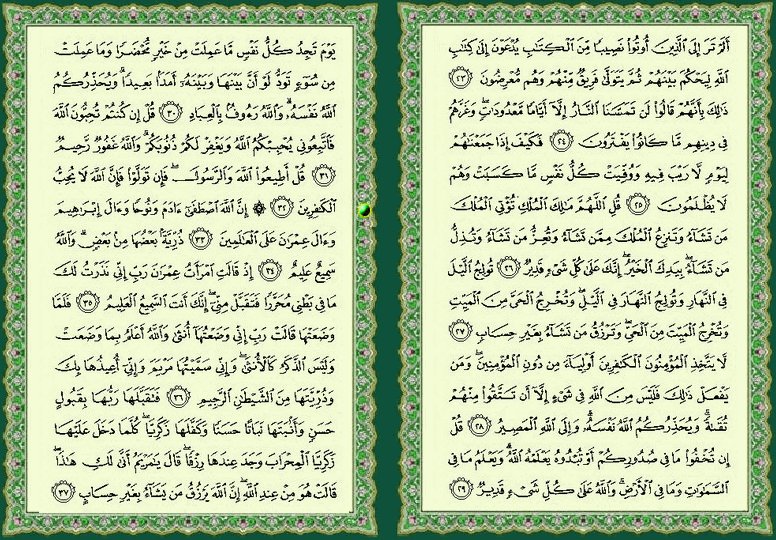 أَلَمْ تَرَ إِلَى ٱلَّذِينَ أُوتُوا۟ نَصِيبًا مِّنَ ٱلْكِتَٰبِ يُدْعَوْنَ إِلَىٰ كِتَٰبِ
ٱللَّهِ لِيَحْكُمَ بَيْنَهُمْ ثُمَّ يَتَوَلَّىٰ فَرِيقٌ مِّنْهُمْ وَهُم مُّعْرِضُونَ ٢٣
ذَٰلِكَ بِأَنَّهُمْ قَالُوا۟ لَن تَمَسَّنَا ٱلنَّارُ إِلَّآ أَيَّامًا مَّعْدُودَٰتٍ ۖ وَغَرَّهُمْ
فِى دِينِهِم مَّا كَانُوا۟ يَفْتَرُونَ ٢٤ فَكَيْفَ إِذَا جَمَعْنَٰهُمْ
لِيَوْمٍ لَّا رَيْبَ فِيهِ وَوُفِّيَتْ كُلُّ نَفْسٍ مَّا كَسَبَتْ وَهُمْ
لَا يُظْلَمُونَ ٢٥ قُلِ ٱللَّهُمَّ مَٰلِكَ ٱلْمُلْكِ تُؤْتِى ٱلْمُلْكَ
مَن تَشَآءُ وَتَنزِعُ ٱلْمُلْكَ مِمَّن تَشَآءُ وَتُعِزُّ مَن تَشَآءُ وَتُذِلُّ
مَن تَشَآءُ ۖ بِيَدِكَ ٱلْخَيْرُ ۖ إِنَّكَ عَلَىٰ كُلِّ شَىْءٍ قَدِيرٌ ٢٦ تُولِجُ ٱلَّيْلَ
فِى ٱلنَّهَارِ وَتُولِجُ ٱلنَّهَارَ فِى ٱلَّيْلِ ۖ وَتُخْرِجُ ٱلْحَىَّ مِنَ ٱلْمَيِّتِ
وَتُخْرِجُ ٱلْمَيِّتَ مِنَ ٱلْحَىِّ ۖ وَتَرْزُقُ مَن تَشَآءُ بِغَيْرِ حِسَابٍ ٢٧
لَّا يَتَّخِذِ ٱلْمُؤْمِنُونَ ٱلْكَٰفِرِينَ أَوْلِيَآءَ مِن دُونِ ٱلْمُؤْمِنِينَ ۖ وَمَن
يَفْعَلْ ذَٰلِكَ فَلَيْسَ مِنَ ٱللَّهِ فِى شَىْءٍ إِلَّآ أَن تَتَّقُوا۟ مِنْهُمْ
تُقَىٰةً ۗ وَيُحَذِّرُكُمُ ٱللَّهُ نَفْسَهُۥ ۗ وَإِلَى ٱللَّهِ ٱلْمَصِيرُ ٢٨ قُلْ
إِن تُخْفُوا۟ مَا فِى صُدُورِكُمْ أَوْ تُبْدُوهُ يَعْلَمْهُ ٱللَّهُ ۗ وَيَعْلَمُ مَا فِى
ٱلسَّمَٰوَٰتِ وَمَا فِى ٱلْأَرْضِ ۗ وَٱللَّهُ عَلَىٰ كُلِّ شَىْءٍ قَدِيرٌ ٢٩
يَوْمَ تَجِدُ كُلُّ نَفْسٍ مَّا عَمِلَتْ مِنْ خَيْرٍ مُّحْضَرًا وَمَا عَمِلَتْ
مِن سُوٓءٍ تَوَدُّ لَوْ أَنَّ بَيْنَهَا وَبَيْنَهُۥٓ أَمَدًۢا بَعِيدًا ۗ وَيُحَذِّرُكُمُ
ٱللَّهُ نَفْسَهُۥ ۗ وَٱللَّهُ رَءُوفٌۢ بِٱلْعِبَادِ ٣٠ قُلْ إِن كُنتُمْ تُحِبُّونَ ٱللَّهَ
فَٱتَّبِعُونِى يُحْبِبْكُمُ ٱللَّهُ وَيَغْفِرْ لَكُمْ ذُنُوبَكُمْ ۗ وَٱللَّهُ غَفُورٌ رَّحِيمٌ
٣١ قُلْ أَطِيعُوا۟ ٱللَّهَ وَٱلرَّسُولَ ۖ فَإِن تَوَلَّوْا۟ فَإِنَّ ٱللَّهَ لَا يُحِبُّ
ٱلْكَٰفِرِينَ ٣٢ ۞ إِنَّ ٱللَّهَ ٱصْطَفَىٰٓ ءَادَمَ وَنُوحًا وَءَالَ إِبْرَٰهِيمَ
وَءَالَ عِمْرَٰنَ عَلَى ٱلْعَٰلَمِينَ ٣٣ ذُرِّيَّةًۢ بَعْضُهَا مِنۢ بَعْضٍ ۗ وَٱللَّهُ
سَمِيعٌ عَلِيمٌ ٣٤ إِذْ قَالَتِ ٱمْرَأَتُ عِمْرَٰنَ رَبِّ إِنِّى نَذَرْتُ لَكَ
مَا فِى بَطْنِى مُحَرَّرًا فَتَقَبَّلْ مِنِّىٓ ۖ إِنَّكَ أَنتَ ٱلسَّمِيعُ ٱلْعَلِيمُ ٣٥ فَلَمَّا
وَضَعَتْهَا قَالَتْ رَبِّ إِنِّى وَضَعْتُهَآ أُنثَىٰ وَٱللَّهُ أَعْلَمُ بِمَا وَضَعَتْ
وَلَيْسَ ٱلذَّكَرُ كَٱلْأُنثَىٰ ۖ وَإِنِّى سَمَّيْتُهَا مَرْيَمَ وَإِنِّىٓ أُعِيذُهَا بِكَ
وَذُرِّيَّتَهَا مِنَ ٱلشَّيْطَٰنِ ٱلرَّجِيمِ ٣٦ فَتَقَبَّلَهَا رَبُّهَا بِقَبُولٍ
حَسَنٍ وَأَنۢبَتَهَا نَبَاتًا حَسَنًا وَكَفَّلَهَا زَكَرِيَّا ۖ كُلَّمَا دَخَلَ عَلَيْهَا
زَكَرِيَّا ٱلْمِحْرَابَ وَجَدَ عِندَهَا رِزْقًا ۖ قَالَ يَٰمَرْيَمُ أَنَّىٰ لَكِ هَٰذَا ۖ
قَالَتْ هُوَ مِنْ عِندِ ٱللَّهِ ۖ إِنَّ ٱللَّهَ يَرْزُقُ مَن يَشَآءُ بِغَيْرِ حِسَابٍ ٣٧